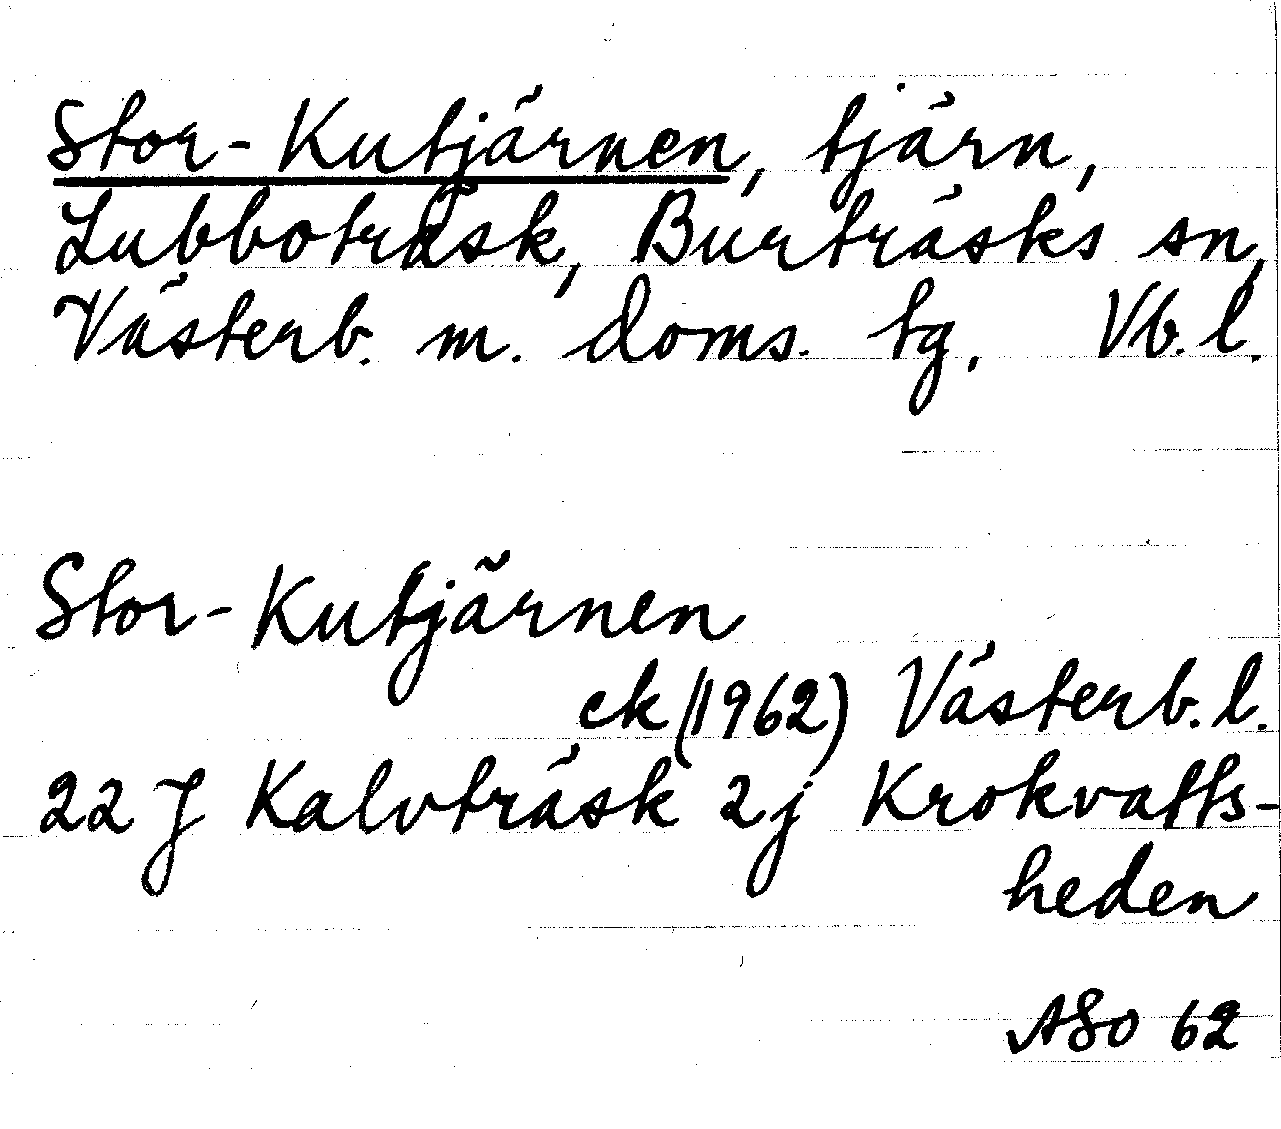 Stor-Kutjärnen, tjärn,
Lubboträsk, Burträsks sn,
Västerb. m. doms. tg. Vb. l.
Stor-Kutjärnen
ek (1962) Västerb. l.
22 J Kalvträsk 2j Krokvatts-
heden
ASO 62